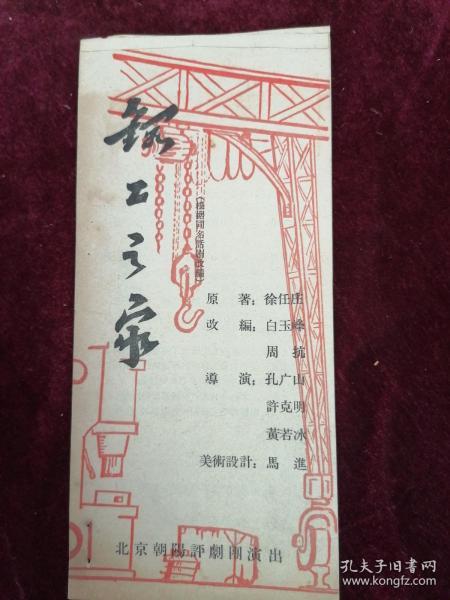 鉚工之家
(根据同名話劇改編)
原著：徐任庄
改編：白玉峰
周抗
導演：孔广山
許克明
黃若冰
美術設計：馬進
北京朝陽評劇團演出
孔夫子旧书网
www.kongfz.com